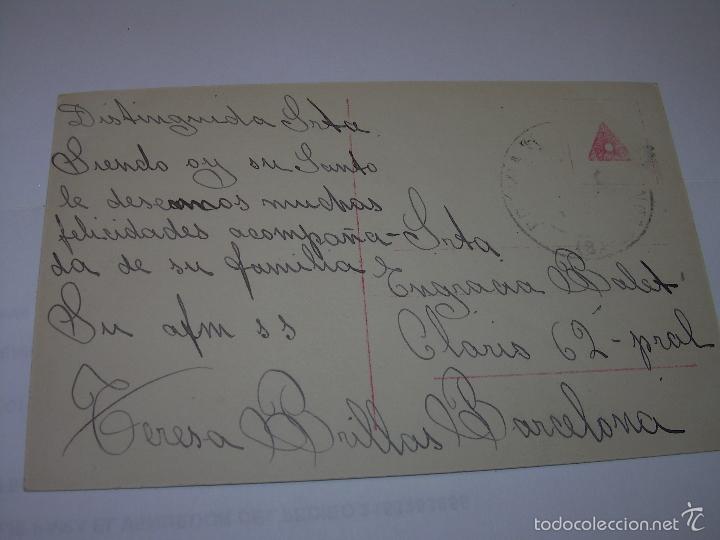 Distinguida Srta
Siendo oy su Santo
le deseamos muchas
felicidades acompaña-
da de su familia
Su afm ss
Teresa Brillas
Srta
Engracia Balet
Claris 62-pral
Barcelona
todocoleccion.net